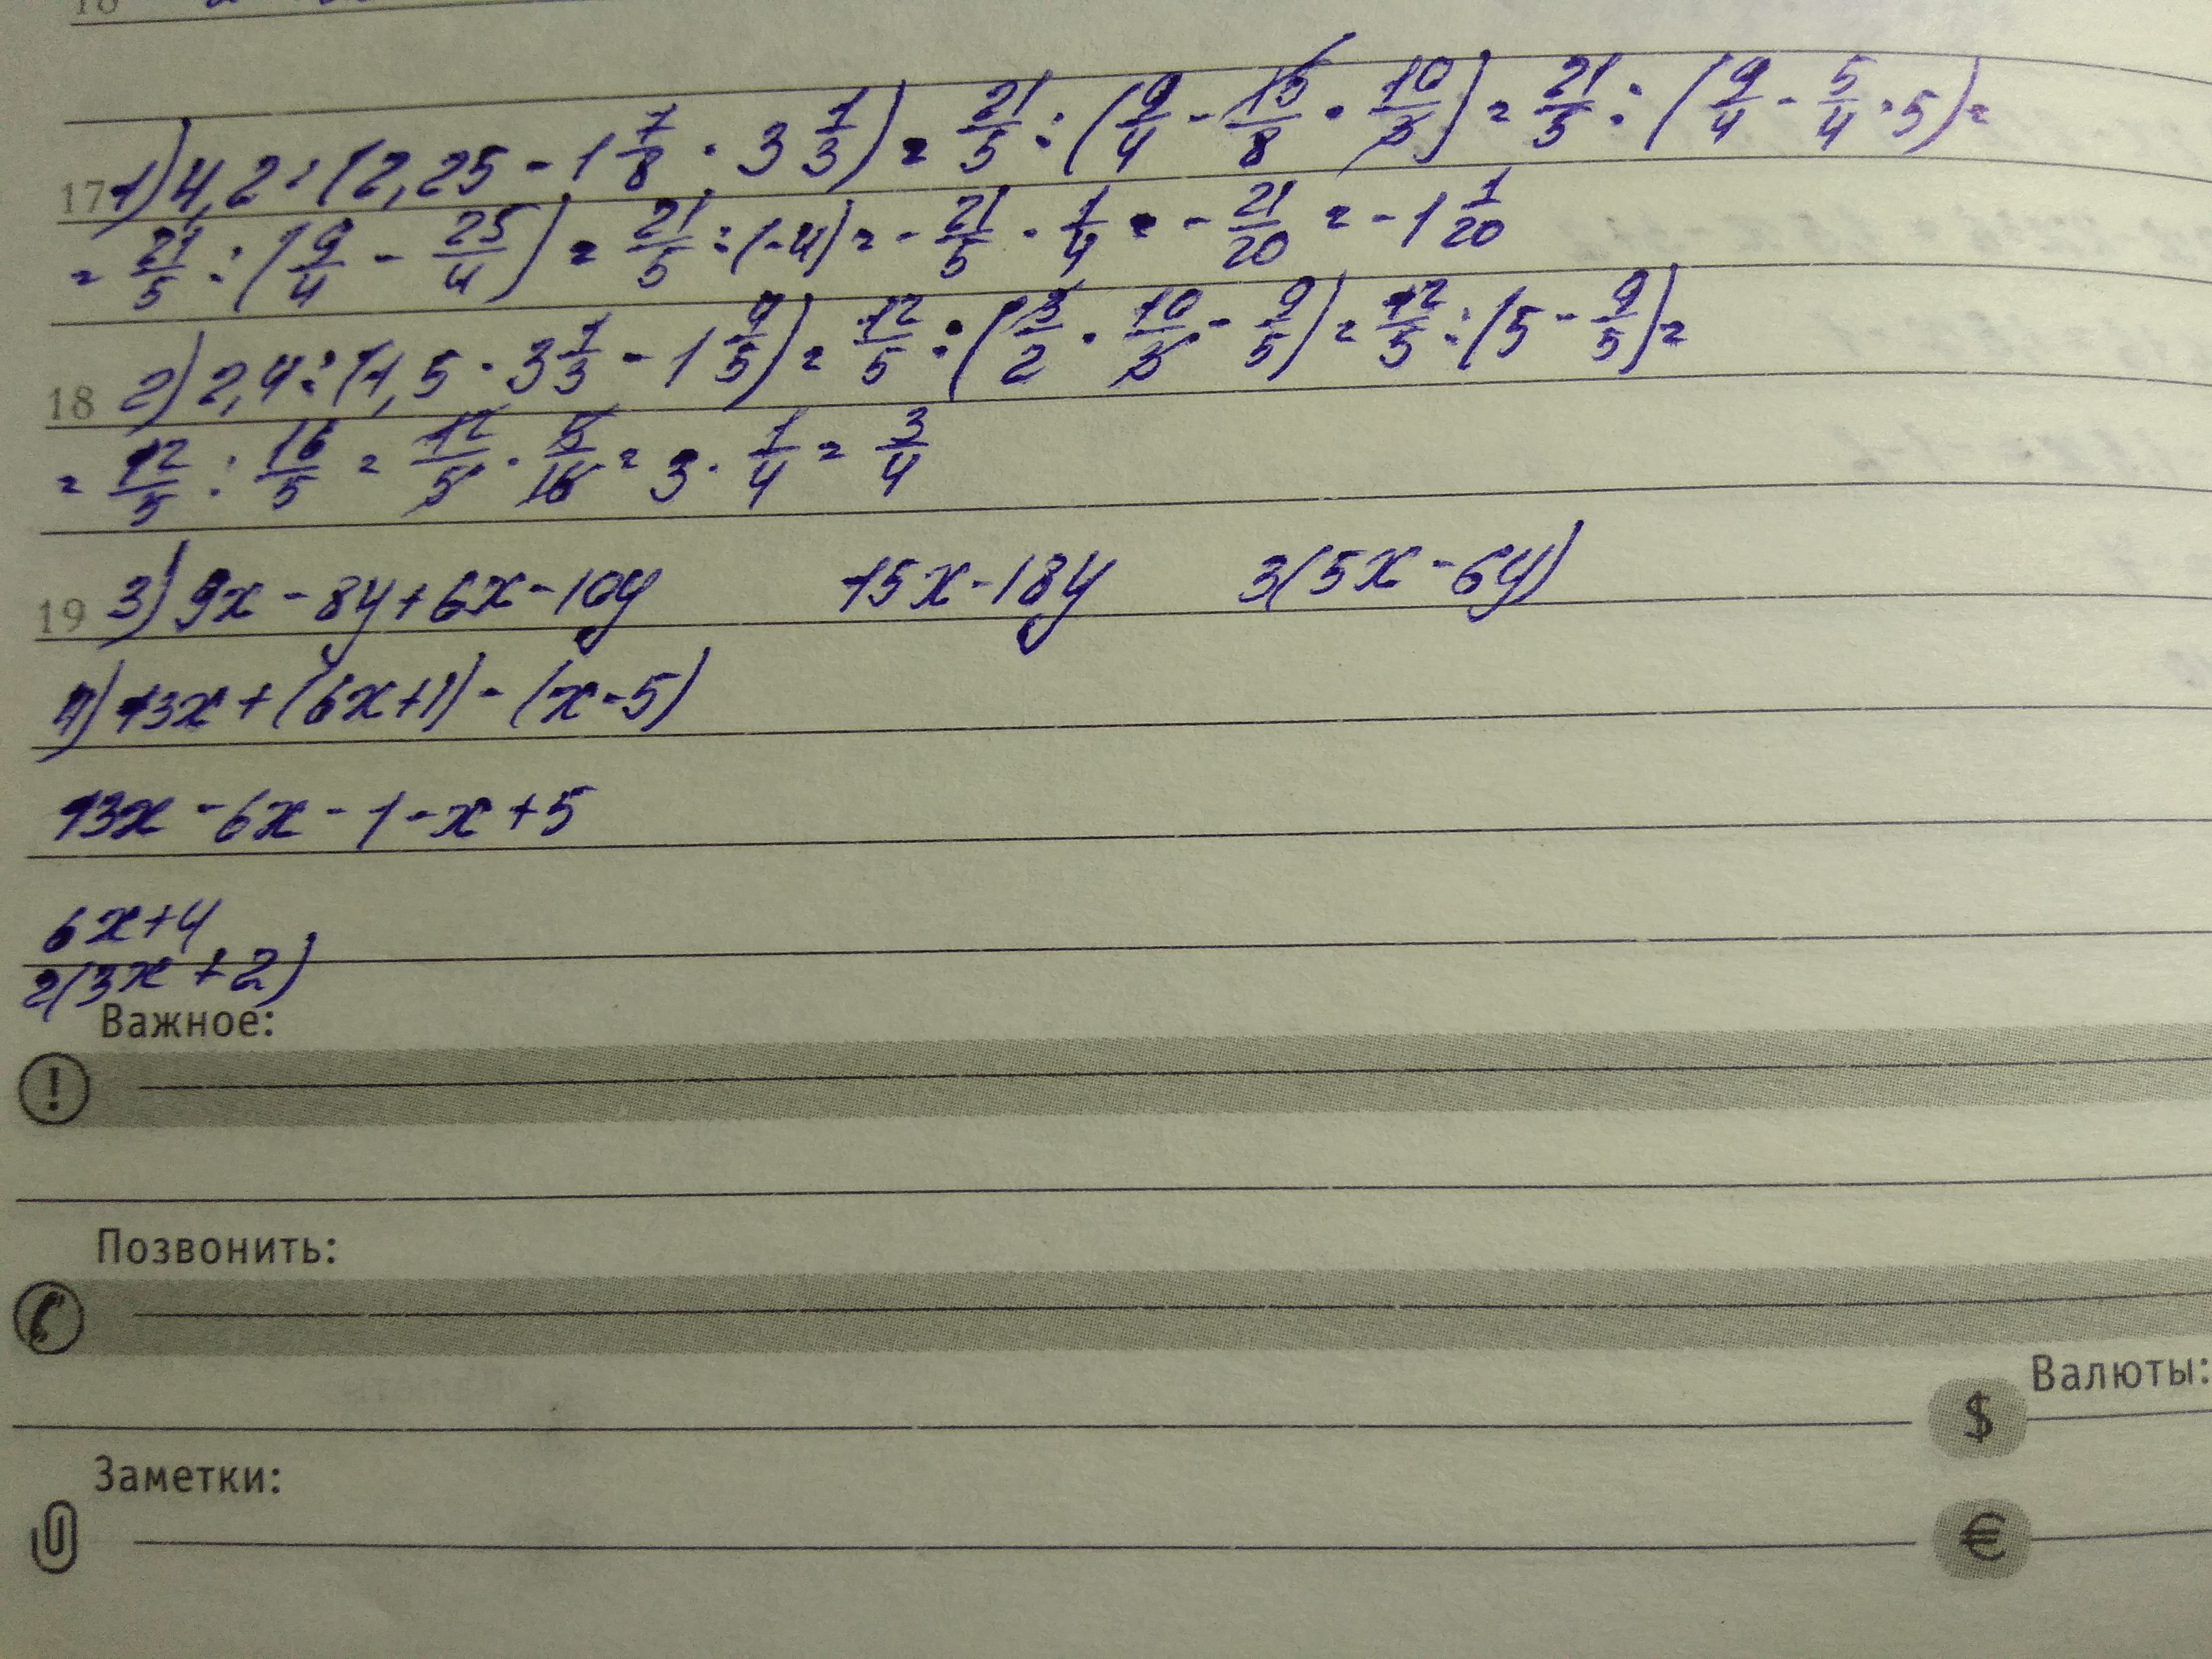 17 1) 4,2 : (2,25 - 1 7/8 · 3 1/3) = 21/5 : (9/4 - 15/8 · 10/3) = 21/5 : (9/4 - 5/4 · 5) =
= 21/5 : (9/4 - 25/4) = 21/5 : (-4) = - 21/5 · 1/4 = - 21/20 = - 1 1/20
18 2) 2,4 : (1,5 · 3 1/3 - 1 4/5) = 12/5 : (3/2 · 10/3 - 9/5) = 12/5 : (5 - 9/5) =
= 12/5 : 16/5 = 12/5 · 5/16 = 3 · 1/4 = 3/4
19 3) 9x - 8y + 6x - 10y 15x - 18y 3(5x - 6y)
4) 13x + (6x+1) - (x-5)
13x - 6x - 1 - x + 5
6x+4
2(3x + 2)
Важное:
Позвонить:
Валюты:
$
Заметки:
€